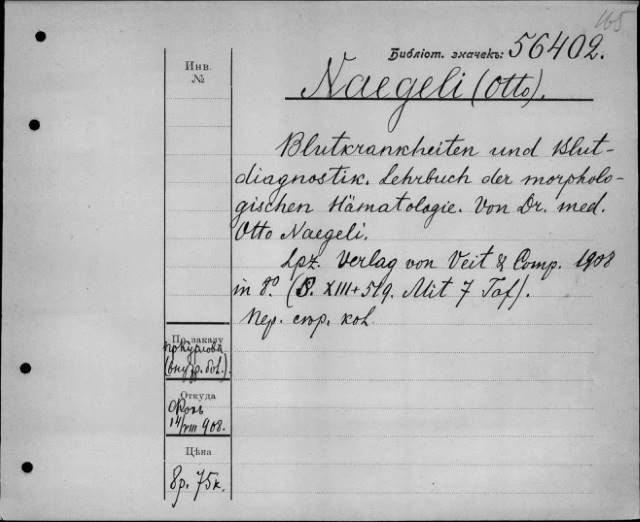 165
Библіот. значекъ: 56402.
Инв.
№
Naegeli (Otto).
Blutkrankheiten und Blut-
diagnostik. Lehrbuch der morpholo-
gischen Hämatologie. Von Dr. med.
Otto Naegeli.
Lpz. Verlag von Veit & Comp. 1908
in 8°. (S. XIII + 519. Mit 7 Taf).
По заказу
(внутр. бол.).
Откуда
14/VIII 908.
Цѣна
8р. 75к.